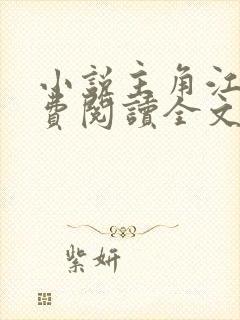 小說主角江
費閱讀全文
紫妍